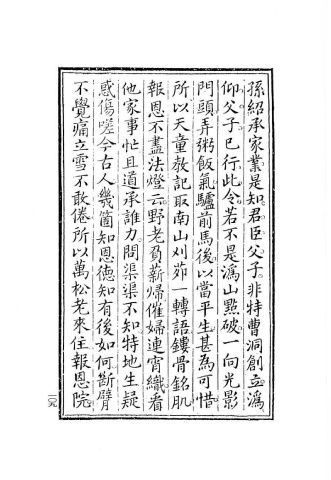 孫紹承家業是知君臣父子非特曹洞創立溈
仰父子已行此令若不是溈山點破一向光影
門頭弄粥飯氣驢前馬後以當平生甚為可惜
所以天童教記取南山刈茆一轉語鏤骨銘肌
報恩不盡法燈云野老負薪歸催婦連宵織看
他家事忙且道承誰力問渠渠不知特地生疑
惑傷嗟今古人幾箇知恩德知有後如何斷臂
不覺痛立雪不敢倦所以萬松老來住報恩院